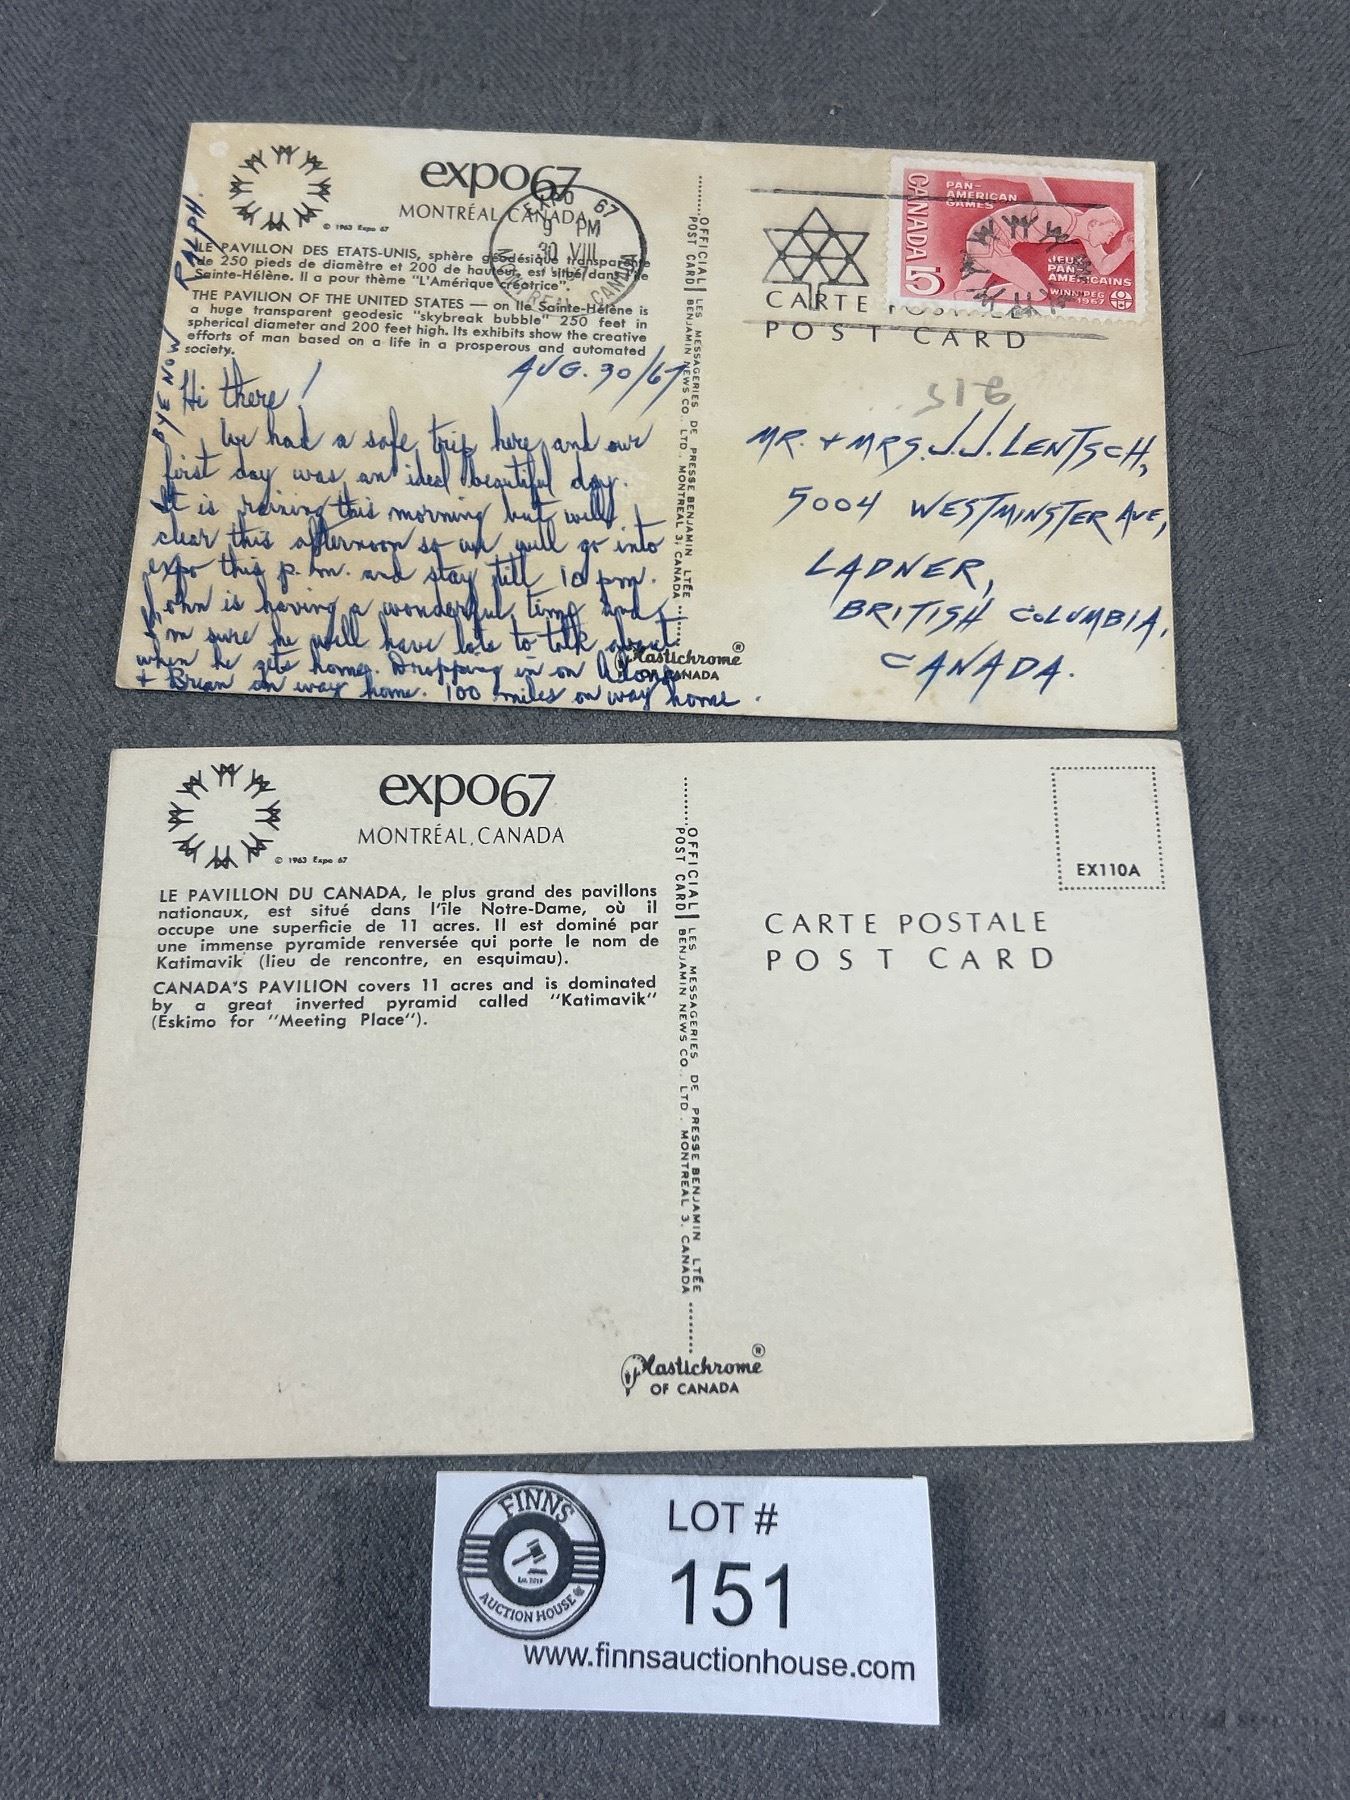 expo67
MONTRÉAL, CANADA
© 1963 Expo 67
LE PAVILLON DES ETATS-UNIS, sphère géodésique transparente
de 250 pieds de diamètre et 200 de hauteur, est situé dans l'île
Sainte-Hélène. Il a pour thème "L'Amérique créatrice".
THE PAVILION OF THE UNITED STATES — on Ile Sainte-Hélène is
a huge transparent geodesic "skybreak bubble" 250 feet in
spherical diameter and 200 feet high. Its exhibits show the creative
efforts of man based on a life in a prosperous and automated
society.
EXPO 67
9 PM
30 VIII
67
MONTREAL CANADA
AUG. 30/67
Hi there!
We had a safe trip here and our
first day was an ideal beautiful day.
It is raining this morning but will
clear this afternoon so we will go into
expo this p.m. and stay till 10 pm.
John is having a wonderful time and
I'm sure he will have lots to talk about
when he gets home. Dropping in on
+ Brian on way home. 100 miles on way home.
BYE NOW
RALPH.
OFFICIAL LES MESSAGERIES DE PRESSE BENJAMIN LTÉE
POST CARD BENJAMIN NEWS CO. LTD. MONTREAL 3, CANADA
Plastichrome ®
OF CANADA
CANADA 5
PAN-
AMERICAN
GAMES
JEUX
PAN-
AMERICAINS
WINNIPEG
1967
CARTE POSTALE
POST CARD
MR. + MRS. J.J. LENTSCH,
5004 WESTMINSTER AVE,
LADNER,
BRITISH COLUMBIA,
CANADA.
expo67
MONTRÉAL, CANADA
© 1963 Expo 67
LE PAVILLON DU CANADA, le plus grand des pavillons
nationaux, est situé dans l'île Notre-Dame, où il
occupe une superficie de 11 acres. Il est dominé par
une immense pyramide renversée qui porte le nom de
Katimavik (lieu de rencontre, en esquimau).
CANADA'S PAVILION covers 11 acres and is dominated
by a great inverted pyramid called "Katimavik"
(Eskimo for "Meeting Place").
OFFICIAL LES MESSAGERIES DE PRESSE BENJAMIN LTÉE
POST CARD BENJAMIN NEWS CO. LTD. MONTREAL 3, CANADA
EX110A
CARTE POSTALE
POST CARD
Plastichrome ®
OF CANADA
FINNS
Est. 2019
AUCTION HOUSE
LOT #
151
www.finnsauctionhouse.com